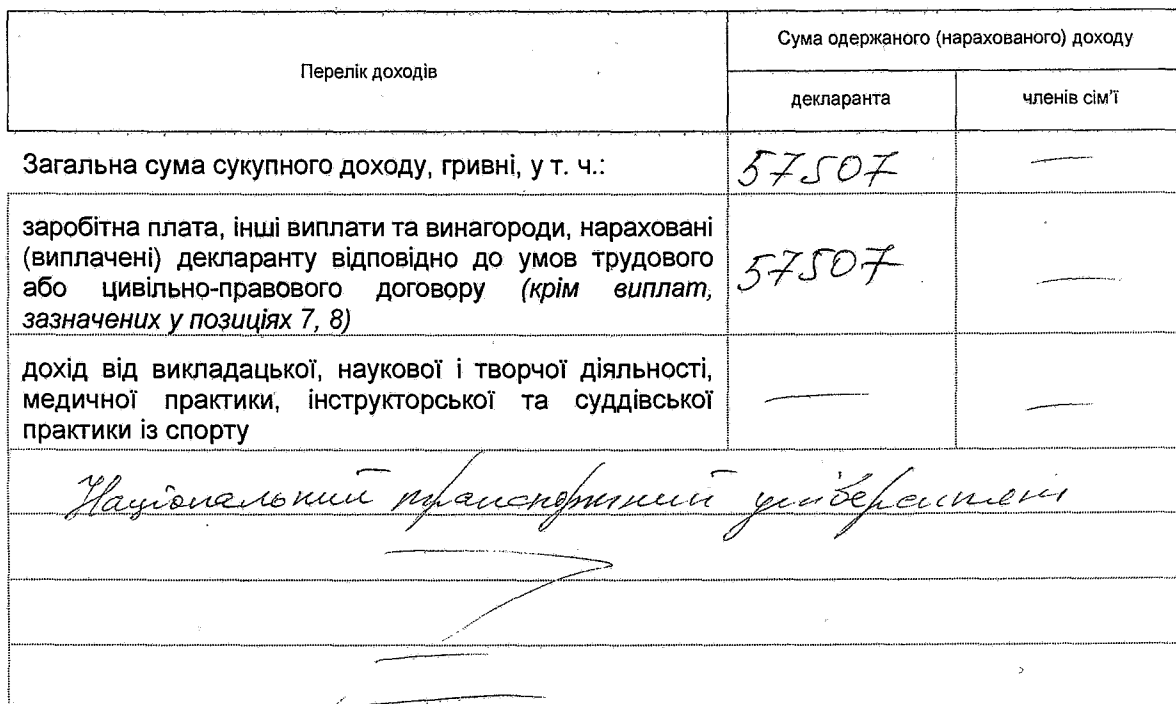 Перелік доходів
Сума одержаного (нарахованого) доходу
декларанта
членів сім'ї
Загальна сума сукупного доходу, гривні, у т. ч.:
57507
—
заробітна плата, інші виплати та винагороди, нараховані
(виплачені) декларанту відповідно до умов трудового
або цивільно-правового договору (крім виплат,
зазначених у позиціях 7, 8)
57507
—
дохід від викладацької, наукової і творчої діяльності,
медичної практики, інструкторської та суддівської
практики із спорту
—
—
Національний транспортний університет